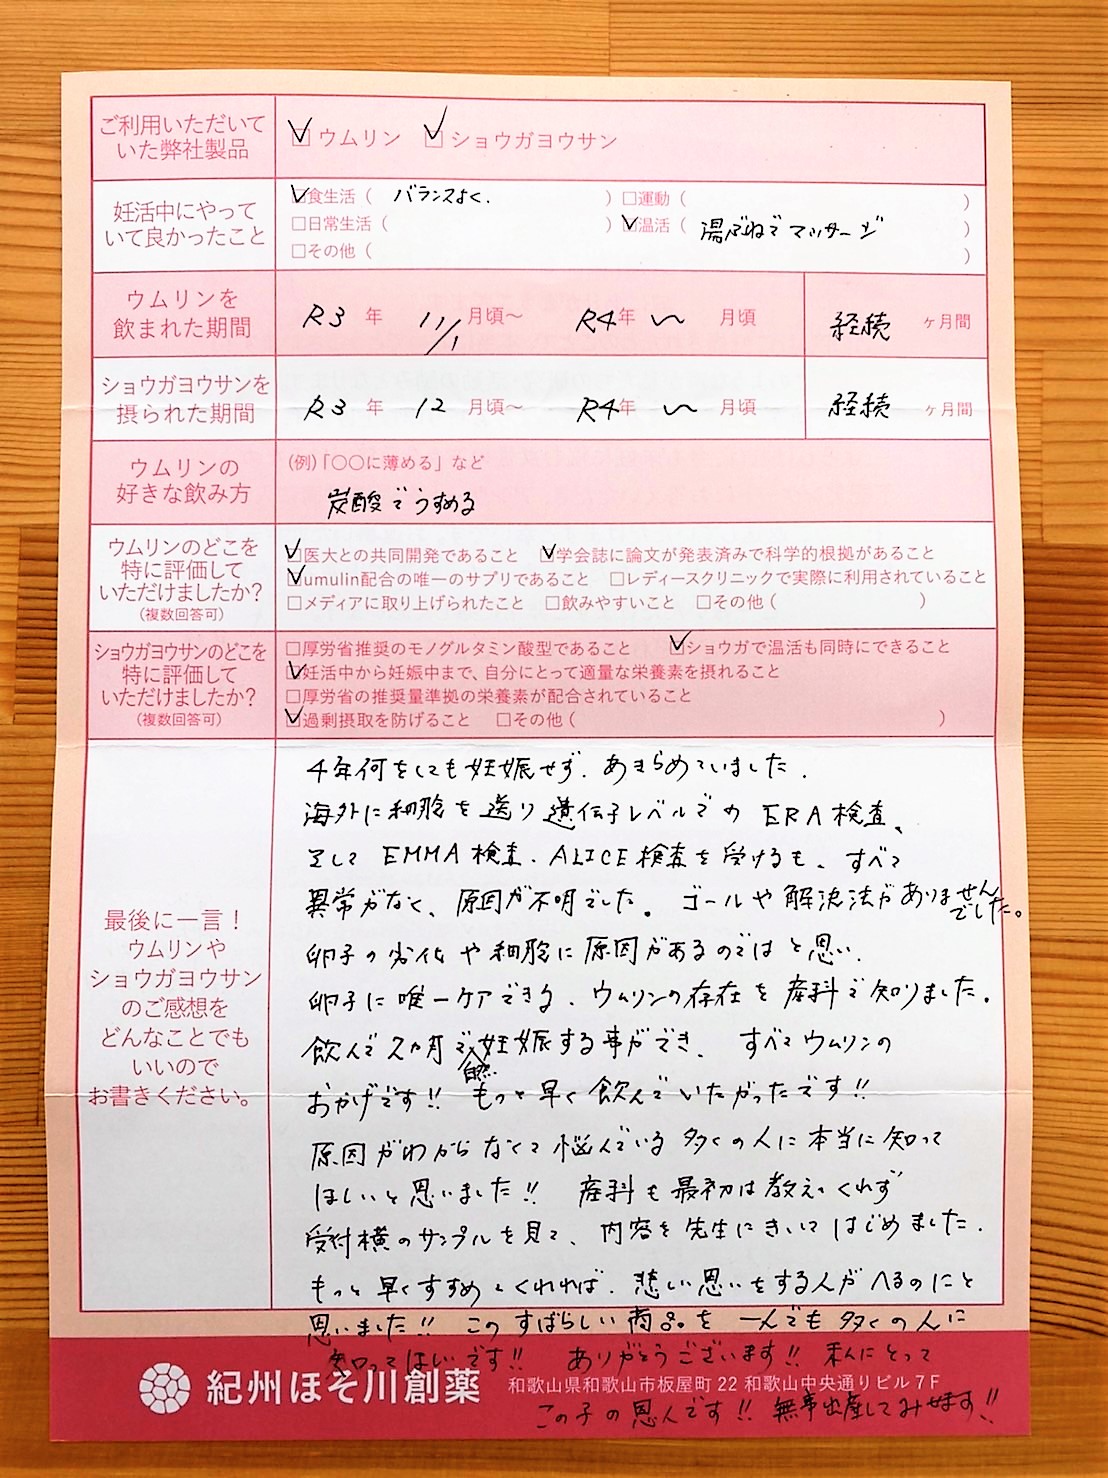 ご利用いただいて
いた弊社製品
☑ウムリン ☑ショウガヨウサン
妊活中にやって
いて良かったこと
☑食生活（ バランスよく. ）□運動（ ）
□日常生活（ ）☑温活（ 湯ぶねでマッサージ ）
□その他（ ）
ウムリンを
飲まれた期間
R3 年 11/1 月頃〜 R4年 〜 月頃 経続 ヶ月間
ショウガヨウサンを
摂られた期間
R3 年 12 月頃〜 R4年 〜 月頃 経続 ヶ月間
ウムリンの
好きな飲み方
（例）「〇〇に薄める」など
炭酸でうすめる
ウムリンのどこを
特に評価して
いただけましたか？
（複数回答可）
☑医大との共同開発であること ☑学会誌に論文が発表済みで科学的根拠があること
☑umulin配合の唯一のサプリであること □レディースクリニックで実際に利用されていること
□メディアに取り上げられたこと □飲みやすいこと □その他（ ）
ショウガヨウサンのどこを
特に評価して
いただけましたか？
（複数回答可）
□厚労省推奨のモノグルタミン酸型であること ☑ショウガで温活も同時にできること
☑妊活中から妊娠中まで、自分にとって適量な栄養素を摂れること
□厚労省の推奨量準拠の栄養素が配合されていること
☑過剰摂取を防げること □その他（ ）
最後に一言！
ウムリンや
ショウガヨウサン
のご感想を
どんなことでも
いいので
お書きください。
4年何をしても妊娠せず、あきらめていました.
海外に細胞を送り遺伝子レベルでの ERA検査、
そして EMMA検査、ALICE検査を受けるも、すべて
異常がなく、原因が不明でした。ゴールや解決法がありませんでした。
卵子の劣化や細胞に原因があるのではと思い、
卵子に唯一ケアできる、ウムリンの存在を産科で知りました。
飲んで2カ月で自然妊娠する事ができ、すべてウムリンの
おかげです!! もっと早く飲んでいたかったです!!
原因がわからなくて悩んでいる多くの人に本当に知って
ほしいと思いました!! 産科も最初は教えてくれず
受付横のサンプルを見て、内容を先生にきいてはじめました.
もっと早くすすめてくれれば、悲しい思いをする人がへるのにと
思いました!! このすばらしい商品を一人でも多くの人に
知ってほしいです!! ありがとうございます!! 私にとって
この子の恩人です!! 無事出産してみせます!!
紀州ほそ川創薬 和歌山県和歌山市板屋町22 和歌山中央通りビル7F